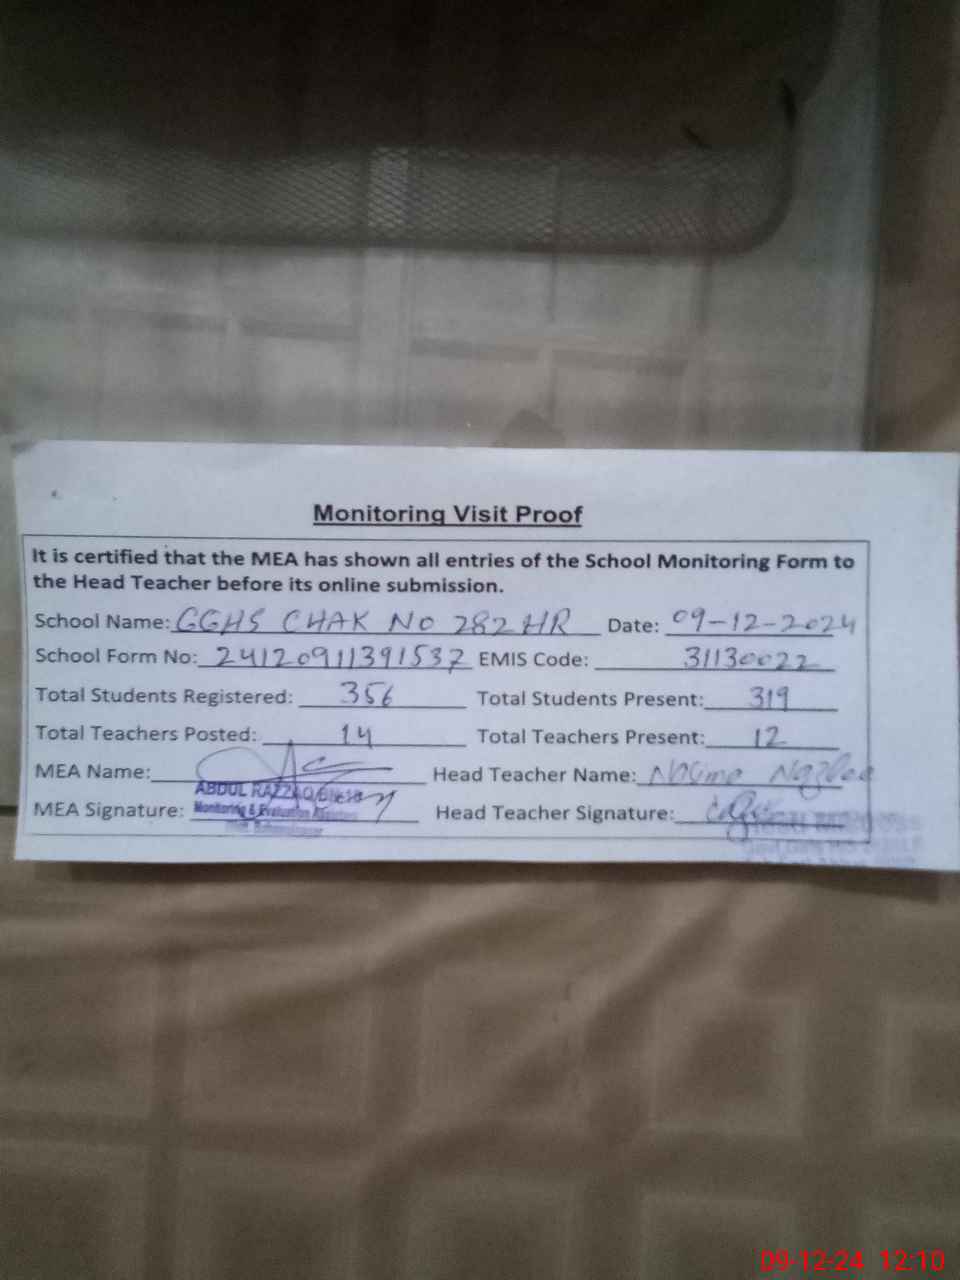 Monitoring Visit Proof
It is certified that the MEA has shown all entries of the School Monitoring Form to
the Head Teacher before its online submission.
School Name: GGHS CHAK NO 282 HR Date: 09-12-2024
School Form No: 24120911391537 EMIS Code: 31130022
Total Students Registered: 356 Total Students Present: 319
Total Teachers Posted: 14 Total Teachers Present: 12
MEA Name: Head Teacher Name:
ABDUL RAZZAQ
MEA Signature: Head Teacher Signature:
Monitoring & Evaluation Assistant
09-12-24 12:10